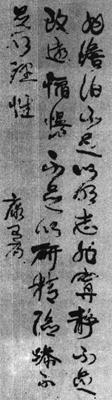 憺泊不足以明志寧靜不足
致遠慆慢不足以研精險躁不
足以理性
康有為